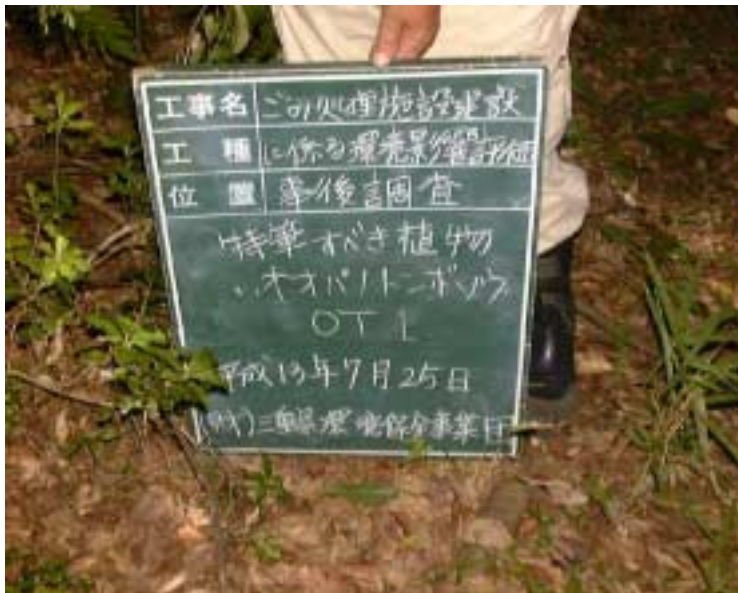 工事名 ごみ処理施設建設
工種 に係る環境影響評価
位置 事後調査
特筆すべき植物
オオバノトンボソウ
OT 1
平成13年7月25日
(財)三重県環境保全事業団